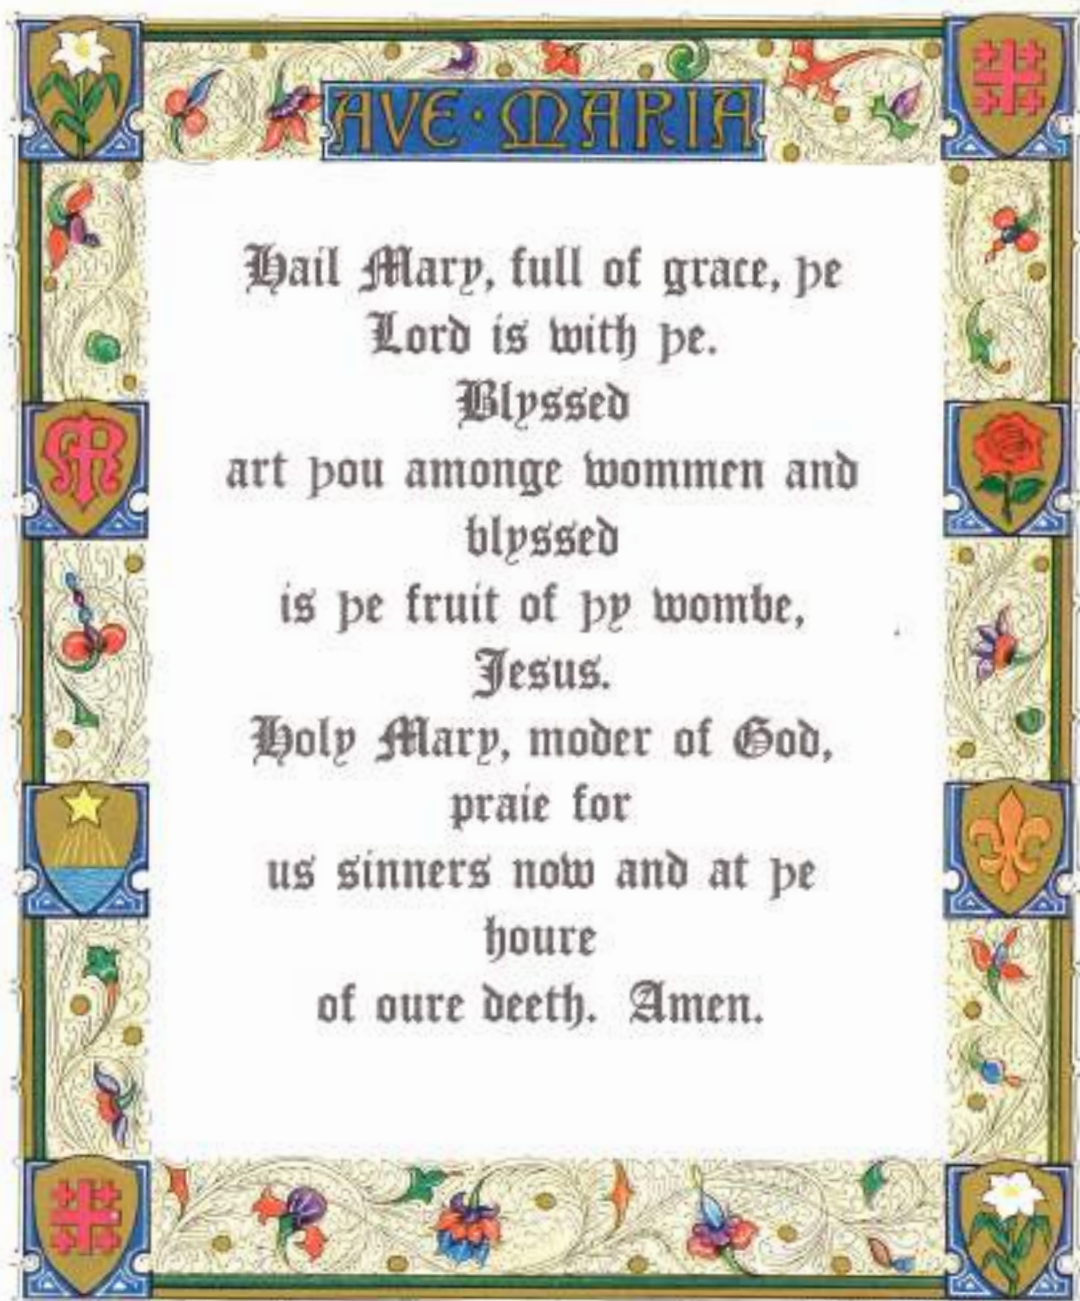 AVE·MARIA
Hail Mary, full of grace, þe
Lord is with þe.
Blyssed
art þou amonge wommen and
blyssed
is þe fruit of þy wombe,
Jesus.
Holy Mary, moder of God,
praie for
us sinners now and at þe
houre
of oure deeth. Amen.